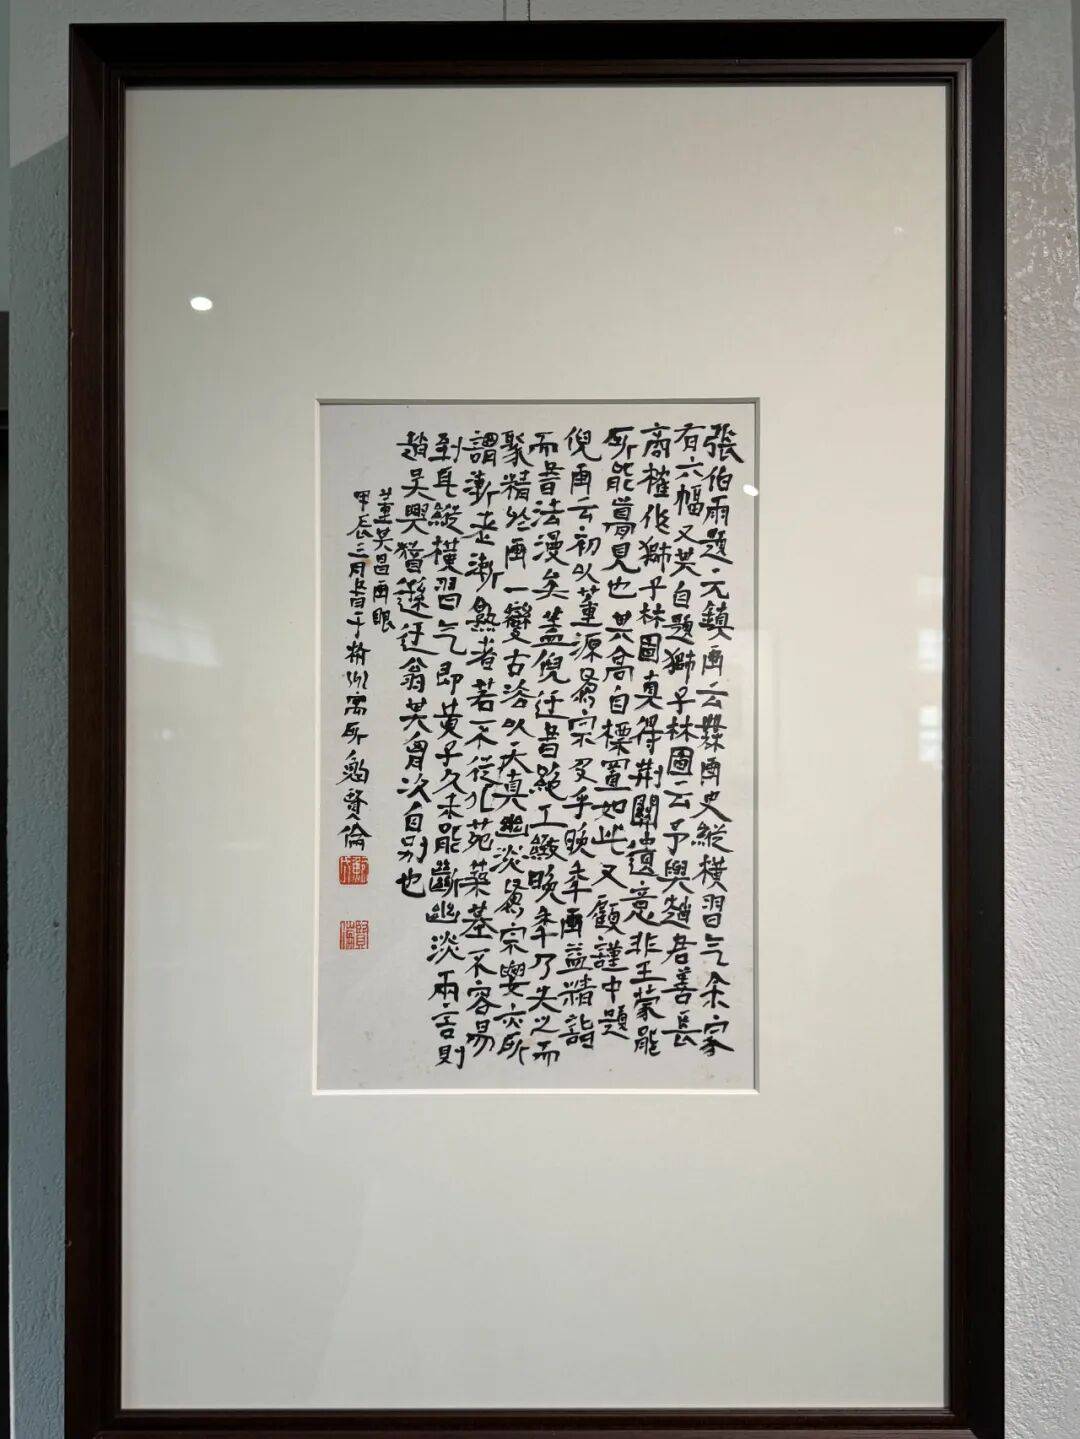 張伯雨題元鎮畫云無畫史縱橫習气余家
有六幅又其自題獅子林圖云予與趙君善長
商榷作獅子林圖真得荊關遺意非王蒙能
所能夢見也其高自標置如此又顧謹中題
倪画云初以董源為宗及乎晚年画益精詣
而書法漫矣蓋倪迂書絕工緻晚年乃失之而
聚精於画一變古法以天真幽淡為宗要亦所
謂漸老漸熟者若不從北苑築基不容易
到耳縱橫習气即黃子久未能斷幽淡兩言則
趙吳興猶遜迂翁其胷次自別也
董其昌画眼
甲辰三月于寓所賢倫
賢倫